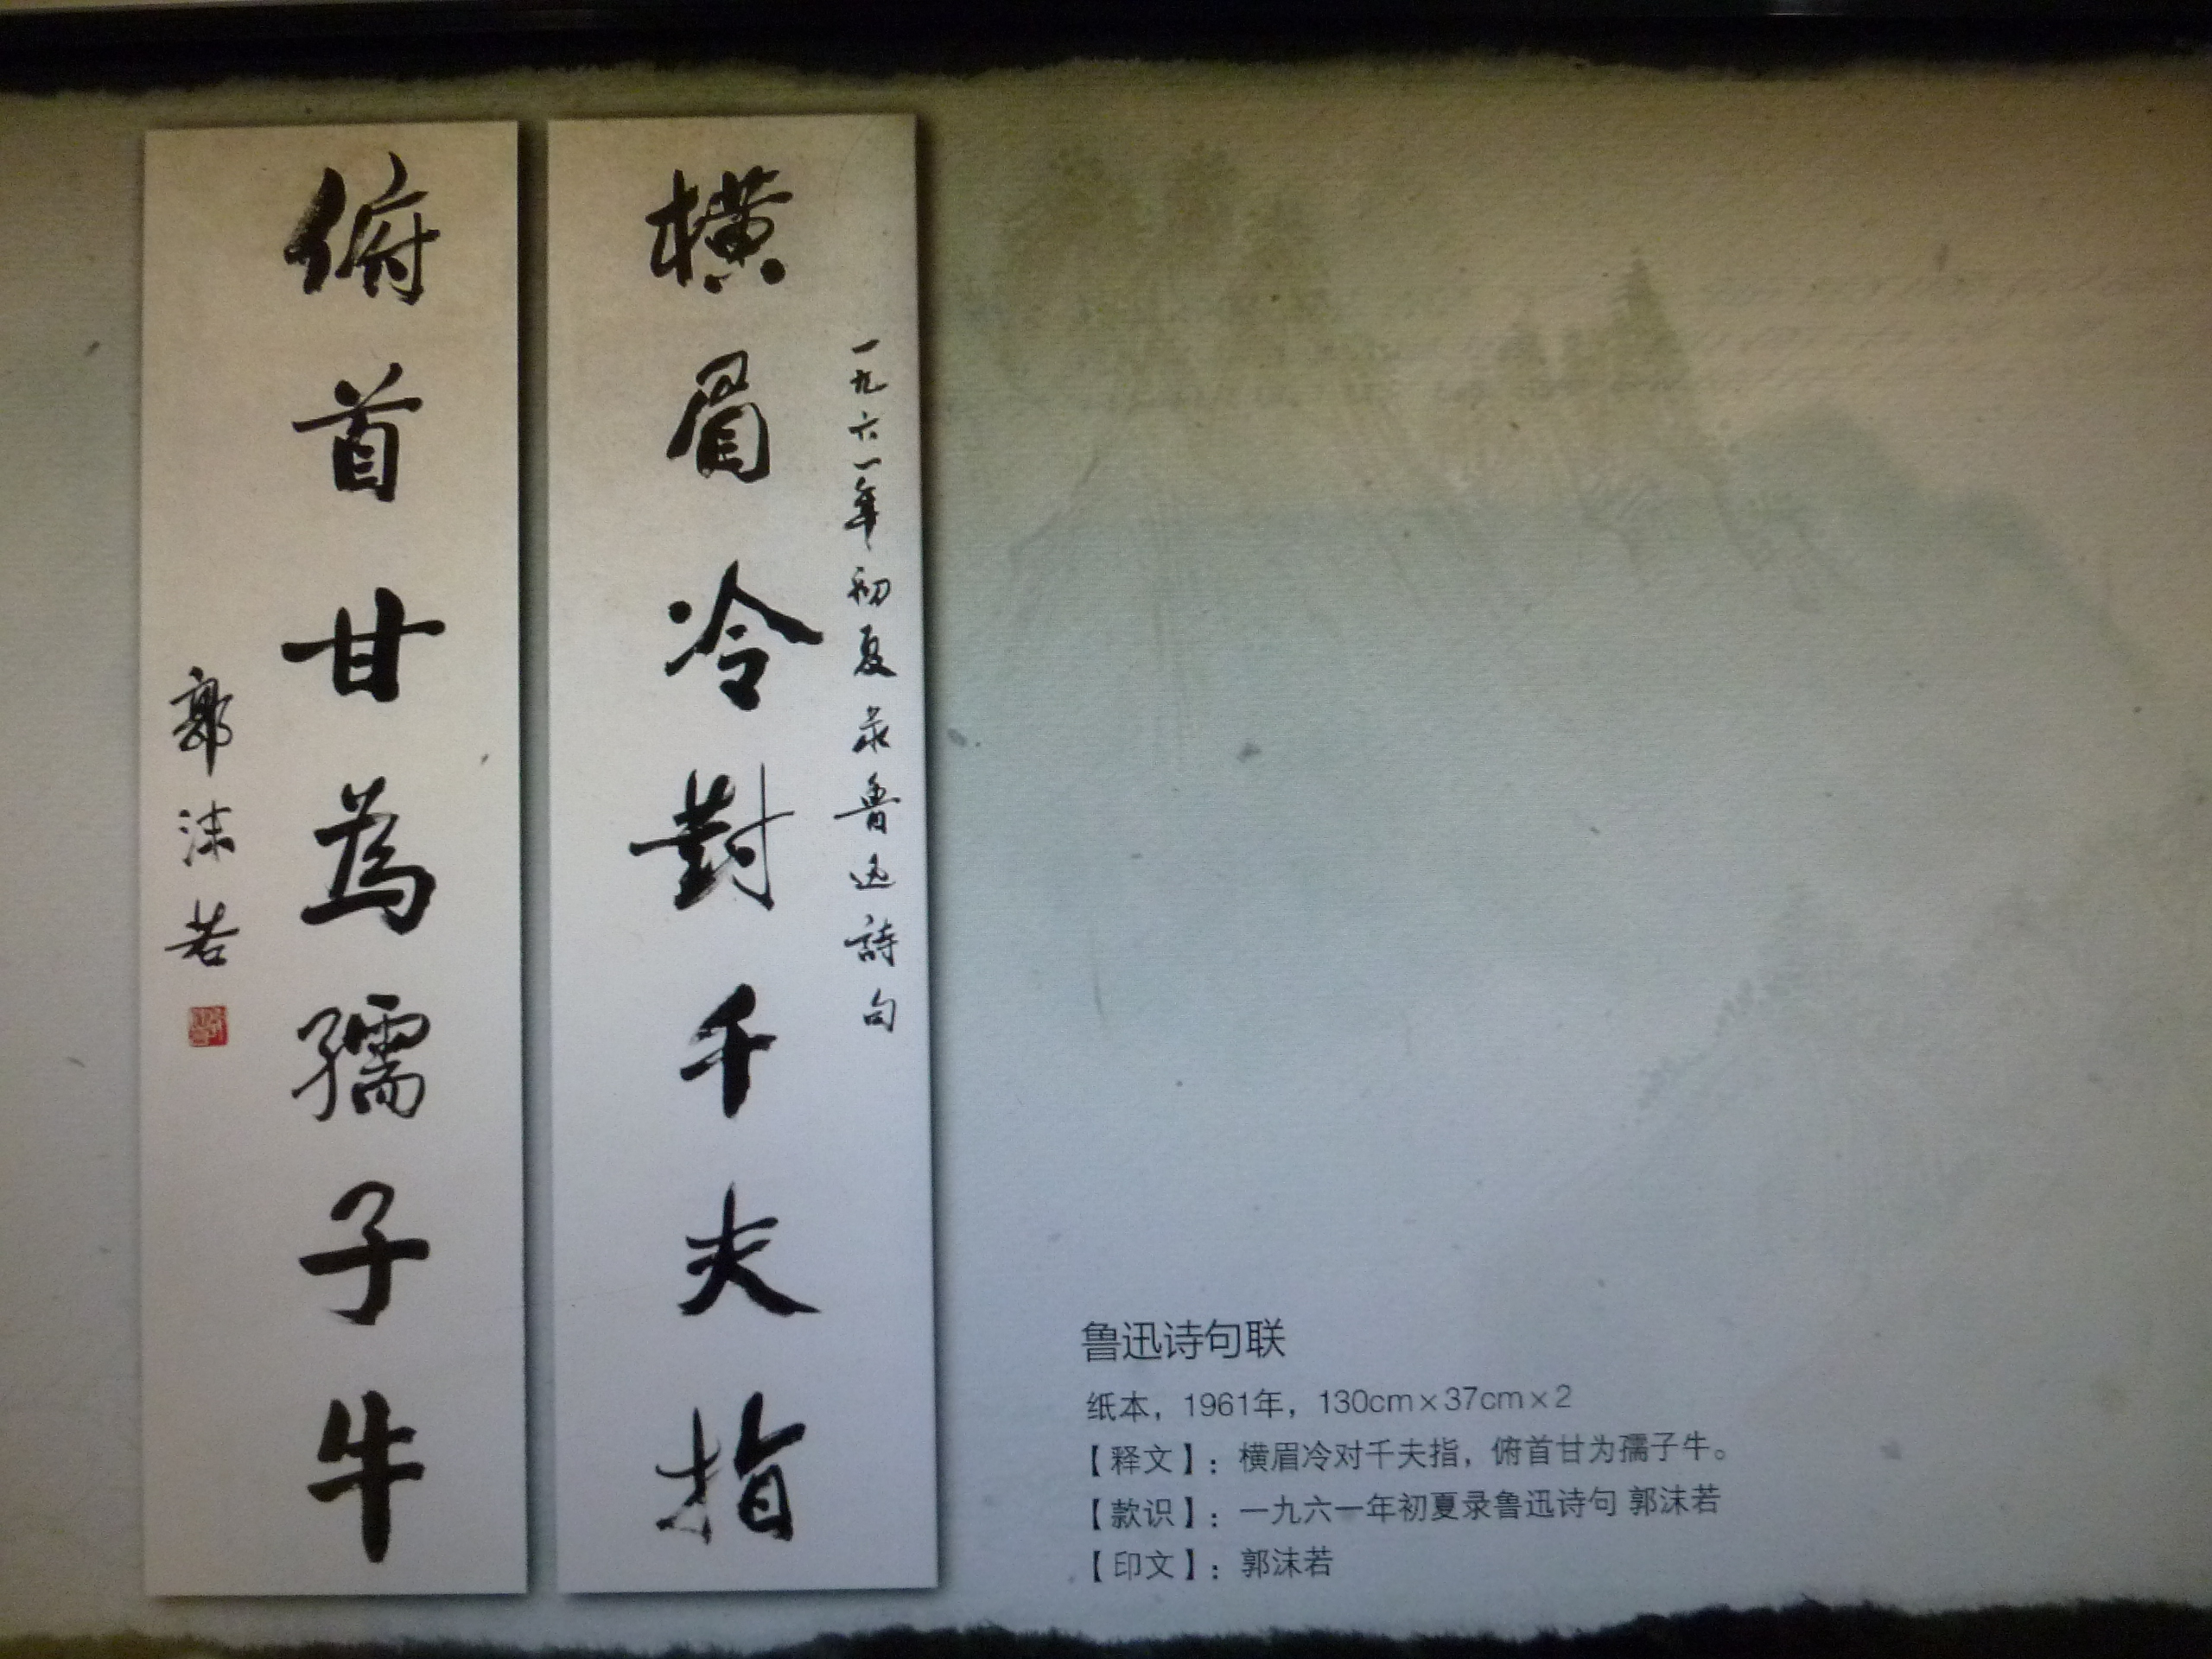 一九六一年初夏录鲁迅詩句
橫眉冷對千夫指
俯首甘為孺子牛
郭沫若
鲁迅诗句联
纸本，1961年，130cm×37cm×2
【释文】：横眉冷对千夫指，俯首甘为孺子牛。
【款识】：一九六一年初夏录鲁迅诗句 郭沫若
【印文】：郭沫若